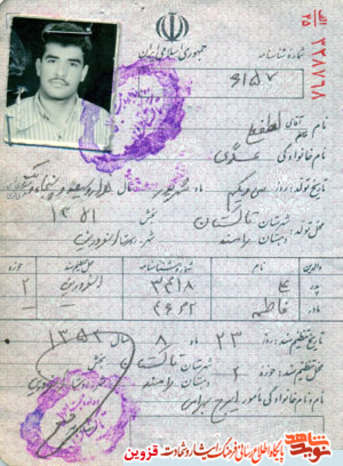 جمهوری اسلامی ایران
شماره شناسنامه
۶۱۵۷
الف
۲۵
۳۳۸۷۶۸
نام آقای لطفعلی
خانم
نام خانوادگی
تاریخ تولد: روز سی و یکم ماه شهریور سال هزار و سیصد و پنجاه و یک
۱۳۵۱
محل تولد: شهرستان تاکستان بخش
دهستان رامند شهر
والدین نام شماره شناسنامه محل تنظیم سند حوزه
پدر ۳۴۱۸ ۲
مادر فاطمه ۴۶۳۲ – –
تاریخ تنظیم سند: روز ۲۳ ماه ۸ سال ۱۳۵۲
محل تنظیم سند: شهرستان تاکستان بخش
حوزه ۲ دهستان رامند
نام و نام خانوادگی مامور ایرج
نوید شاهد
پایگاه اطلاع رسانی فرهنگ ایثار و شهادت قزوین